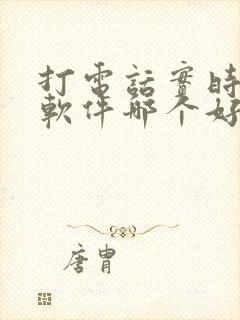 打電話實時
軟件哪个好
唐胄